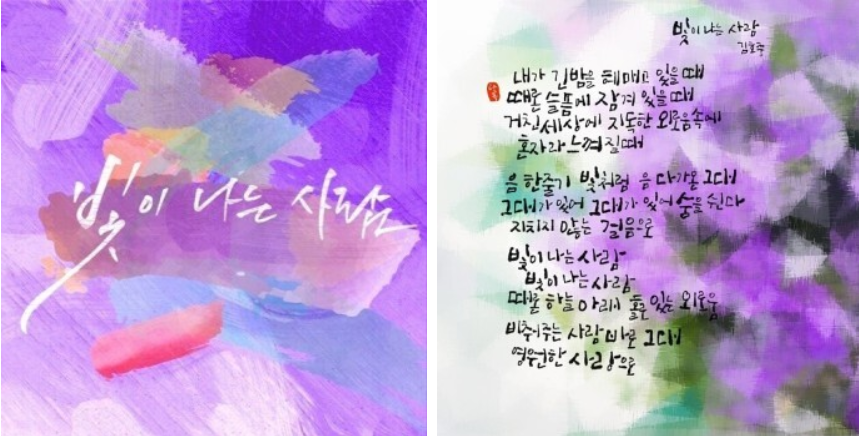 빛이 나는 사람
빛이 나는 사람
김호중
내가 긴밤을 헤매고 있을 때
때론 슬픔에 잠겨 있을 때
거친세상에 지독한 외로움속에
혼자라 느껴질때
음 한줄기 빛처럼 음 다가온 그대
그대가 있어 그대가 있어 숨을 쉰다
지치지 않는 걸음으로
빛이 나는 사람
빛이 나는 사람
때론 하늘 아래 홀로 있는 외로움
비춰주는 사람 바로 그대
영원한 사랑으로